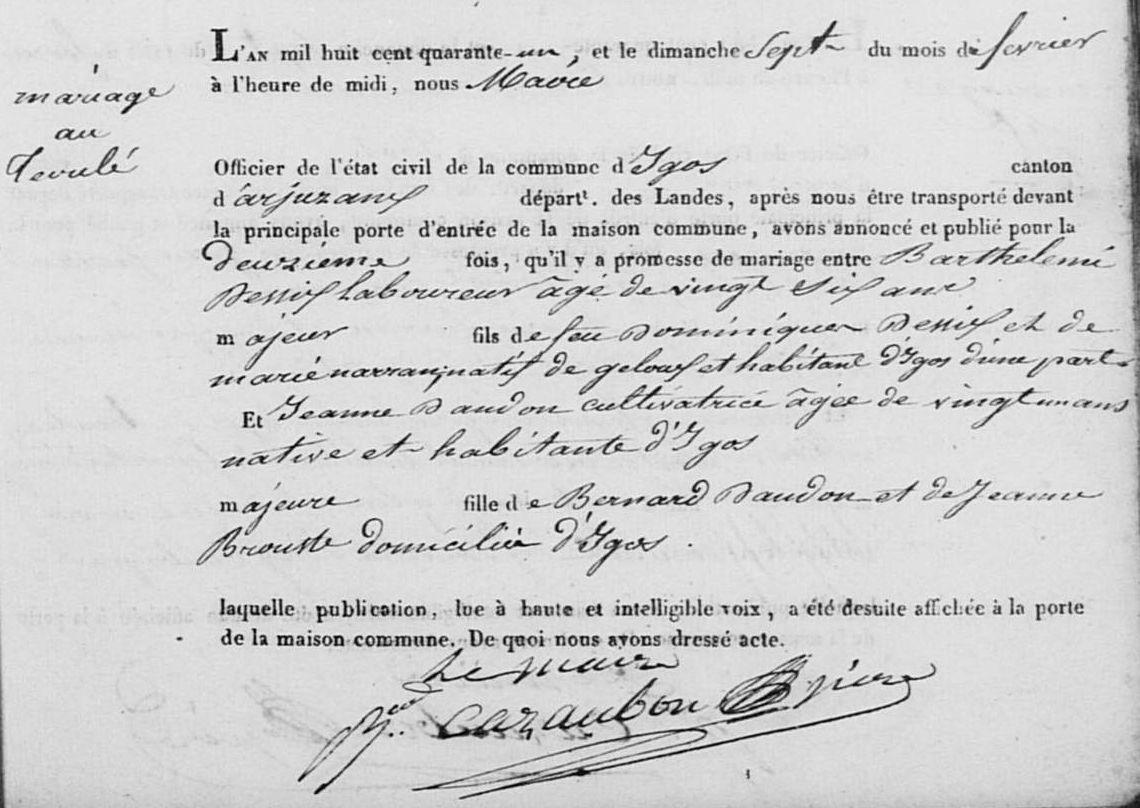 L'AN mil huit cent quarante-un, et le dimanche Sept du mois de fevrier
à l'heure de midi, nous Maire
mariage
au
Officier de l'état civil de la commune d'Ygos canton
d'arjuzanx départ. des Landes, après nous être transporté devant
la principale porte d'entrée de la maison commune, avons annoncé et publié pour la
deuxzième fois, qu'il y a promesse de mariage entre Barthelemi
Dessix laboureur âgé de vingt Six ans
majeur fils de feu Dominique Dessix et de
marie narran, natif de geloux et habitant d'Ygos d'une part
Et Jeanne Daudon cultivatrice âgée de vingt un ans
native et habitante d'Ygos
majeure fille de Bernard Daudon et de Jeanne
Brouste domiciliée d'Ygos.
laquelle publication, lue à haute et intelligible voix, a été desuite affichée à la porte
de la maison commune. De quoi nous avons dressé acte.
Le maire